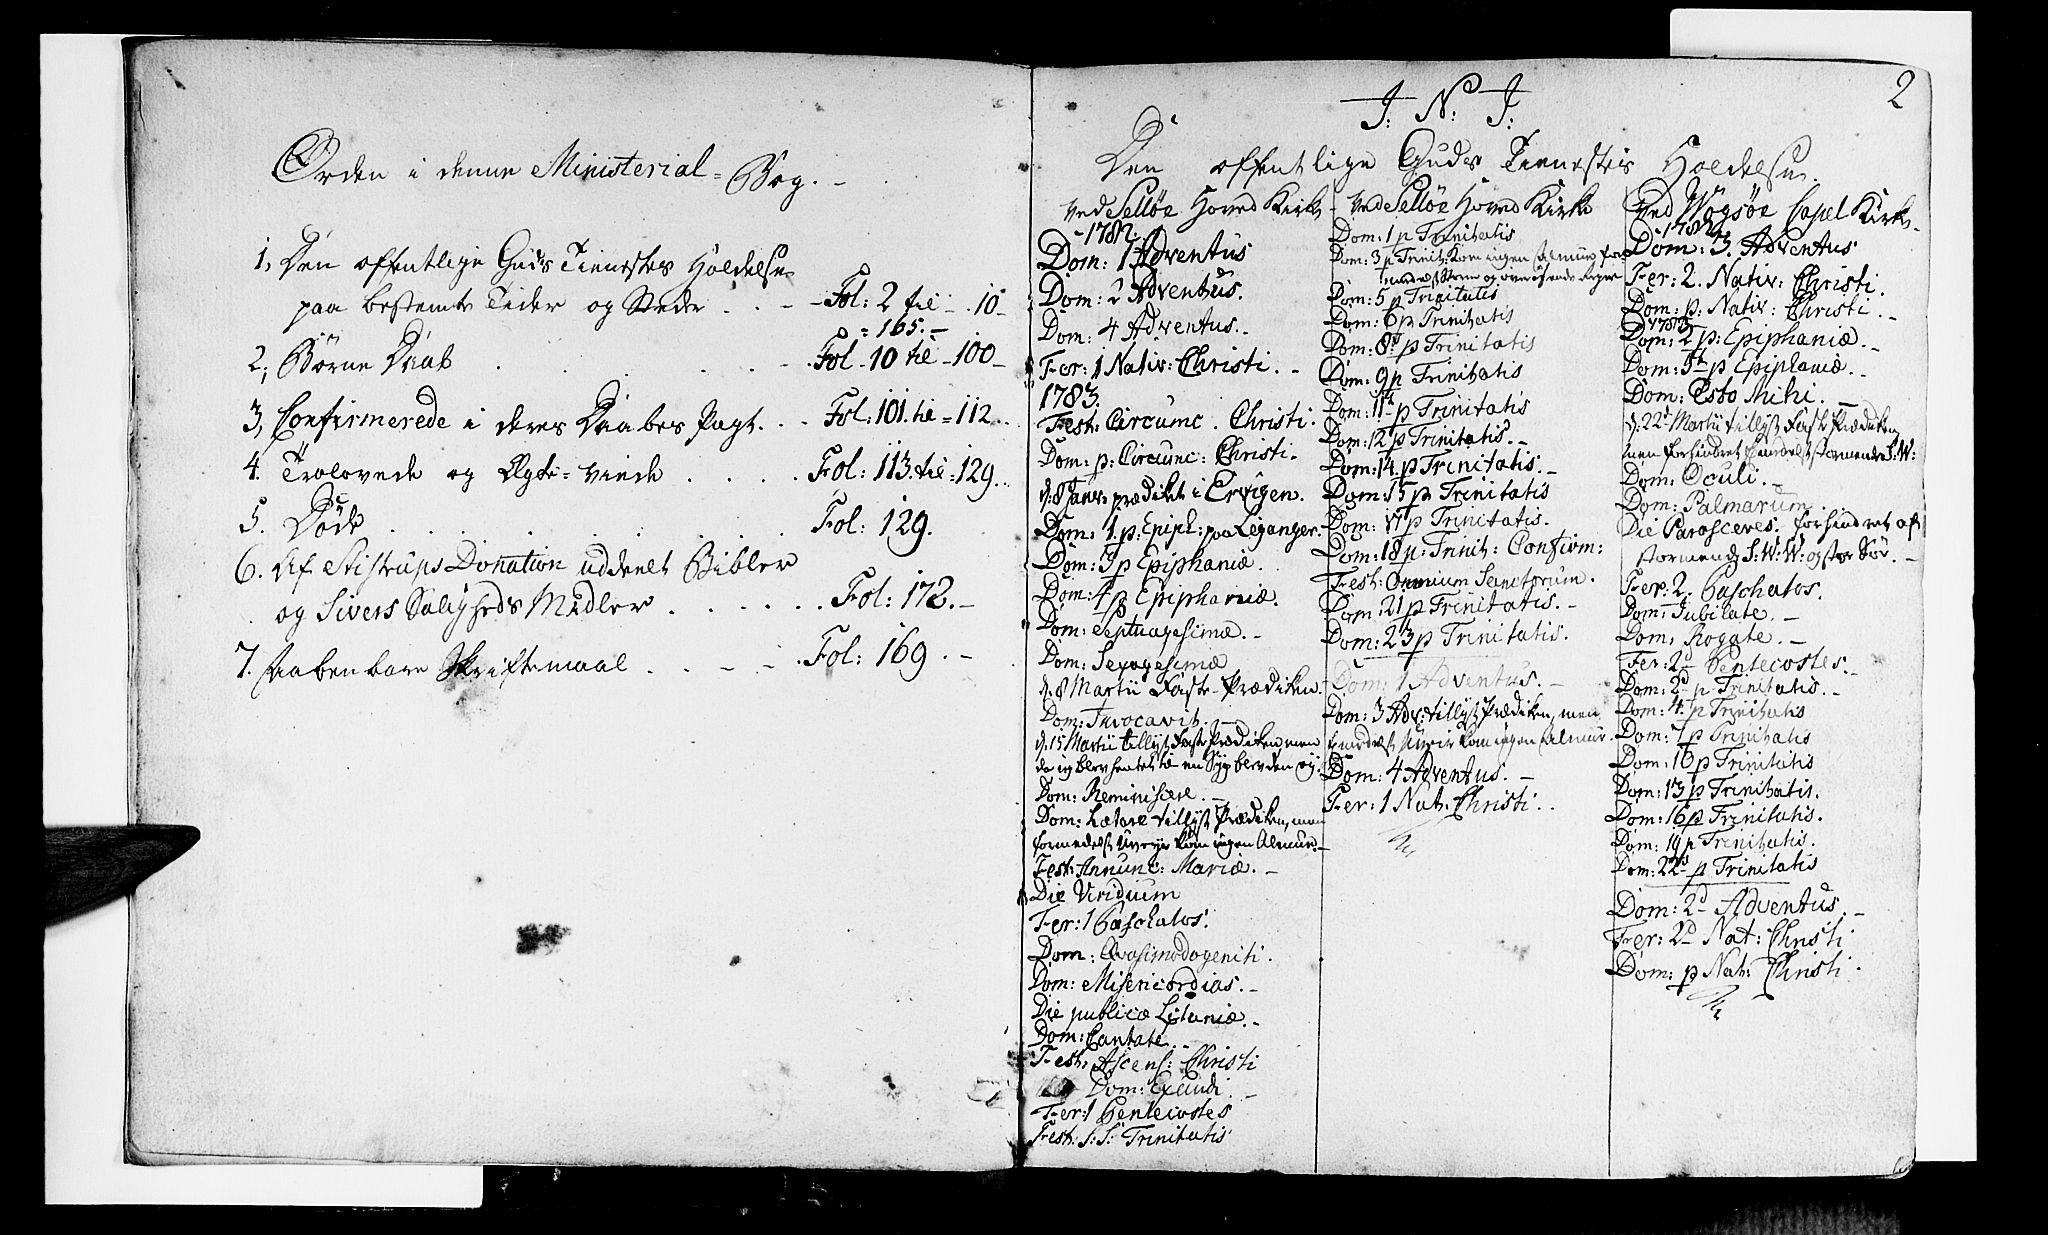 Orden i denne Ministerial-Bog.
1, Den offentlige Guds Tienestes Holdelse
paa bestemte Tider og Steder . . Fol: 2 til 10
= 165.
2, Børne Daab . . . Fol 10 til 100
3, Confirmerede i deres Daabes Pagt. . . Fol: 101. til 112.
4. Trolovede og Ægte-viede . . . Fol: 113. til 129.
5. Døde . . . Fol: 129.
6. Af Stistrups Donation uddeelt Bibler
og Sivers Saligheds Midler . . . Fol: 172.
7. Aabenbare Skriftemaal . . . Fol: 169.
2
J: N: J:
Den offentlige Guds Tienestes Holdelse.
ved Selløe Hoved Kirke
1782.
Dom: 1 Adventus
Dom: 2 Adventus.
Dom: 4 Adventus.
Fer: 1 Nativ: Christi.
1783.
Fest: Circumc. Christi.
Dom: p: Circumc: Christi.
d: 8 Janv: prædiket i Ervigen.
Dom: 1 p: Epiph: paa Leganger.
Dom: 3 p Epiphaniæ.
Dom: 4 p Epiphaniæ.
Dom: Septuagesimæ.
Dom: Sexagesimæ
d. 8 Martii Faste-Prædiken.
Dom: Invocavit.
d. 15 Martii tillyst Faste Prædiken men
da jeg blev hentet til en Syg blev den ej.
Dom: Reminiscere.
Dom: Lætare tillyst Prædiken, men
formedelst Uveyr kom ingen Almue.
Fest: Annunc: Mariæ.
Die Viridium
Fer: 1 Paschatos.
Dom: Qvasimodogeniti.
Dom: Misericordias.
Die publicæ Litaniæ.
Dom: Cantate.
Fest: Ascens: Christi
Dom: Exaudi.
Fer: 1 Pentecostes
Fest: S: S: Trinitatis
ved Selløe Hoved Kirke
Dom: 1 p Trinitatis
Dom: 3 p Trinit: kom ingen Almue for-
medelst Storm og Regn
Dom: 5 p Trinitatis
Dom: 6 p Trinitatis
Dom: 8 p Trinitatis
Dom: 9 p Trinitatis
Dom: 11 p Trinitatis
Dom: 12 p Trinitatis.
Dom: 14. p Trinitatis.
Dom: 15 p Trinitatis
Dom: 17 p Trinitatis.
Dom: 18 p: Trinit: Confirm:
Fest: Omnium Sanctorum.
Dom: 21 p Trinitatis.
Dom: 23 p Trinitatis.
Dom: 1 Adventus.
Dom: 3 Adv: tillyst Prædiken, men
formedelst Uveir kom ingen Almue.
Dom: 4 Adventus.
Fer: 1 Nat: Christi.
Ved Wogsøe Capel Kirke
1782.
Dom: 3. Adventus
Fer: 2. Nativ: Christi.
Dom: p: Nativ: Christi.
1783
Dom: 2 p: Epiphaniæ.
Dom: 5 p Epiphaniæ.
Dom: Esto Mihi.
d: 22 Martii tillyst Faste Prædiken,
men forhindret formedelst stormende S: W:
Dom: Oculi.
Dom: Palmarum.
Die Parasceves. forhindret af
stormende S: W: W: og stor Søe.
Fer: 2. Paschatos.
Dom: Jubilate.
Dom: Rogate.
Fer: 2 Pentecostes.
Dom: 2 p Trinitatis.
Dom: 4. p Trinitatis
Dom: 7 p Trinitatis
Dom: 10 p Trinitatis
Dom: 13 p Trinitatis.
Dom: 16 p Trinitatis.
Dom: 19 p Trinitatis.
Dom: 22 p Trinitatis
Dom: 2 Adventus.
Fer: 2 Nat: Christi
Dom: p Nat: Christi.